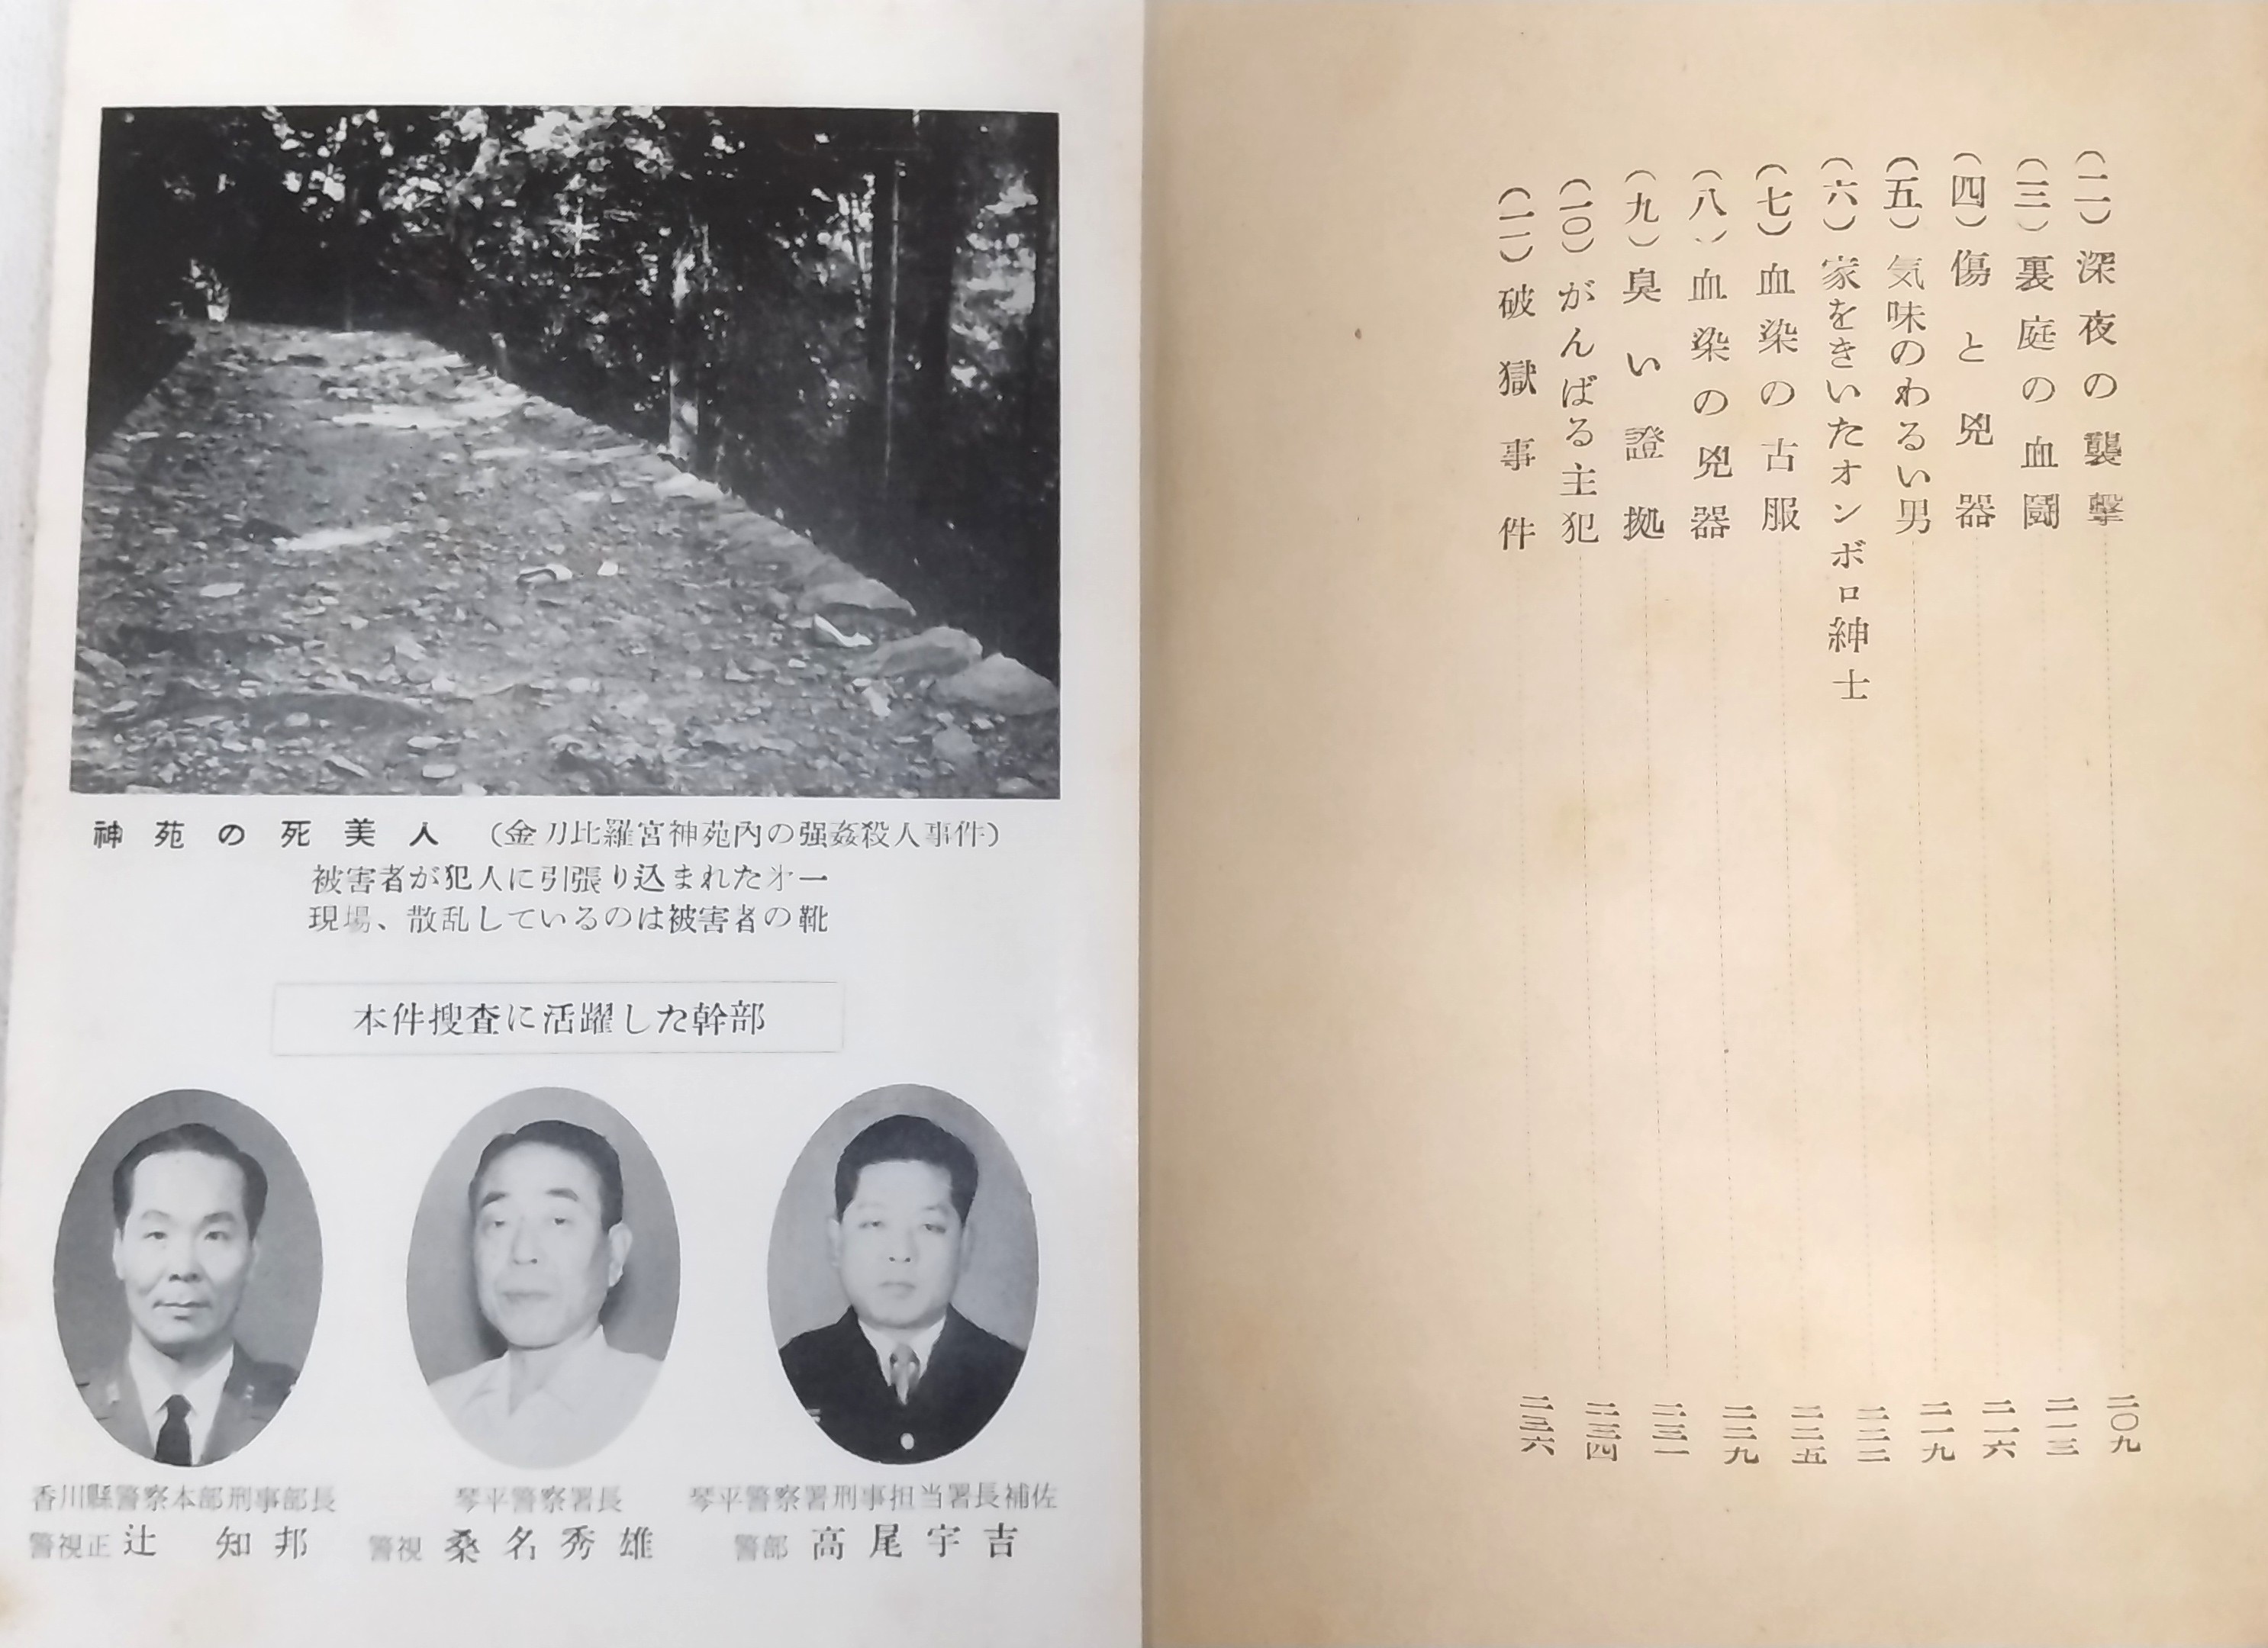 (二)深夜の襲撃 二〇九
(三)裏庭の血闘 二一三
(四)傷と兇器 二一六
(五)気味のわるい男 二一九
(六)家をきいたオンボロ紳士 二二二
(七)血染の古服 二二五
(八)血染の兇器 二二九
(九)臭い證拠 二三一
(一〇)がんばる主犯 二三四
(一一)破獄事件 二三六
神苑の死美人 (金刀比羅宮神苑内の强姦殺人事件)
被害者が犯人に引張り込まれた㐧一
現場、散乱しているのは被害者の靴
本件捜査に活躍した幹部
香川縣警察本部刑事部長
警視正 辻 知邦
琴平警察署長
警視 桑名秀雄
琴平警察署刑事担当署長補佐
警部 高尾宇吉